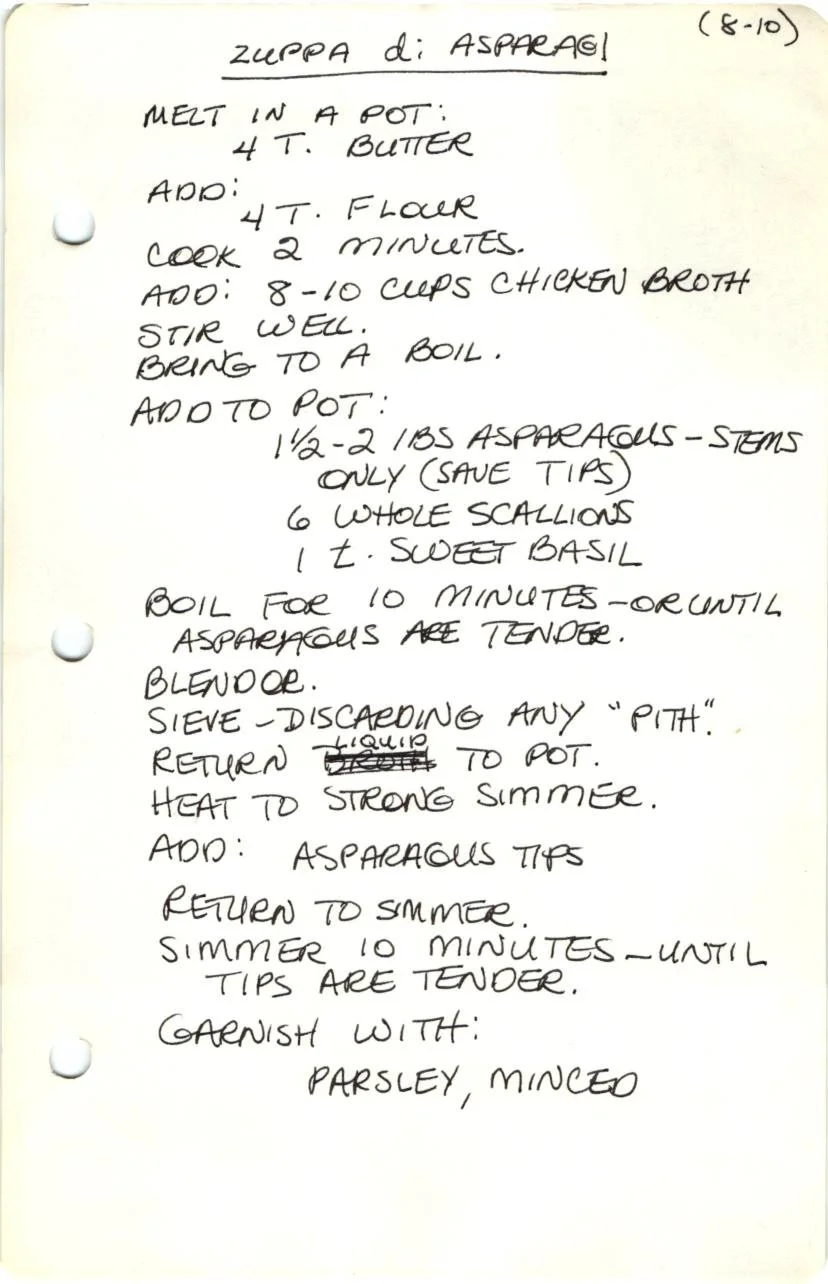 (8-10)
ZUPPA di ASPARAGI
MELT IN A POT:
4 T. BUTTER
ADD:
4 T. FLOUR
COOK 2 MINUTES.
ADD: 8-10 CUPS CHICKEN BROTH
STIR WELL.
BRING TO A BOIL.
ADD TO POT:
1 1/2-2 lBS ASPARAGUS-STEMS
ONLY (SAVE TIPS)
6 WHOLE SCALLIONS
1 t. SWEET BASIL
BOIL FOR 10 MINUTES-OR UNTIL
ASPARAGUS ARE TENDER.
BLENDOR.
SIEVE-DISCARDING ANY "PITH".
RETURN LIQUID TO POT.
HEAT TO STRONG SIMMER.
ADD: ASPARAGUS TIPS
RETURN TO SIMMER.
SIMMER 10 MINUTES-UNTIL
TIPS ARE TENDER.
GARNISH WITH:
PARSLEY, MINCED